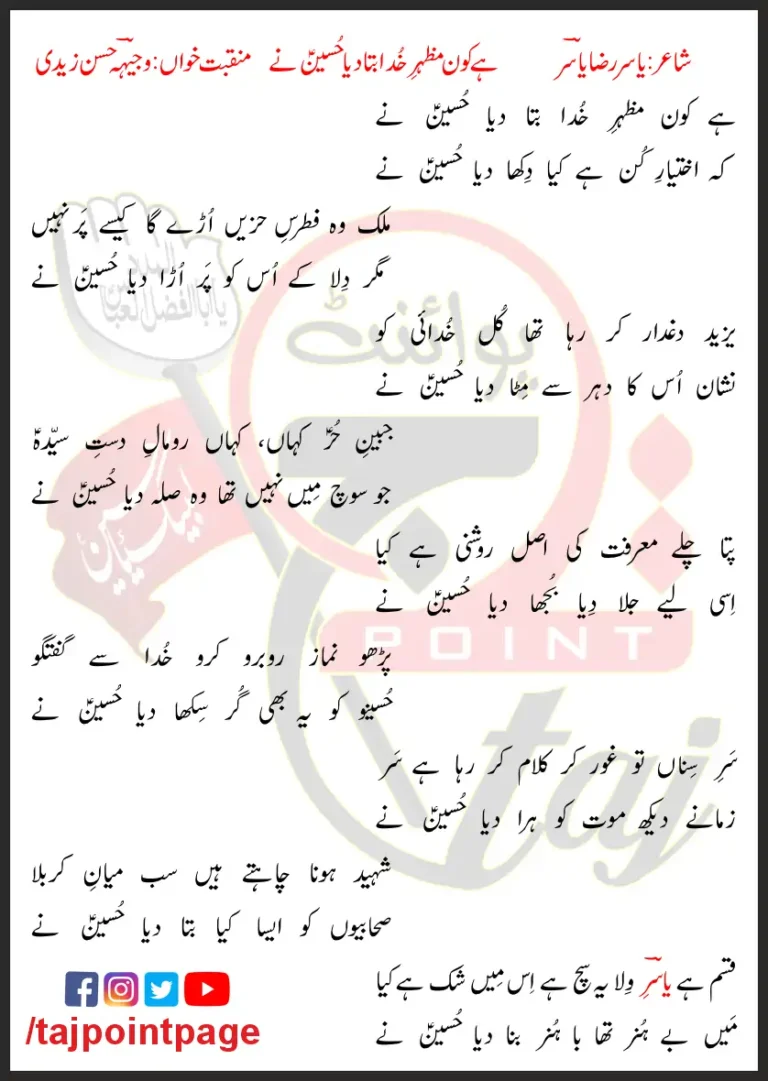 شاعر: یاسر رضا یاسرؔ ہے کون مظہرِ خُدا بتا دیا حُسینؑ نے منقبت خواں: وجیہہ حسن زیدی
ہے کون مظہرِ خُدا بتا دیا حُسینؑ نے
کہ اختیارِ کُن ہے کیا دِکھا دیا حُسینؑ نے
ملک وہ فطرسِ حزیں اُڑے گا کیسے پَر نہیں
مگر دِلا کے اُس کو پَر اُڑا دیا حُسینؑ نے
یزید دغدار کر رہا تھا کُل خُدائی کو
نشان اُس کا دہر سے مِٹا دیا حُسینؑ نے
جبینِ حُرؑ کہاں، کہاں رومالِ دستِ سیّدہؑ
جو سوچ مِیں نہیں تھا وہ صلہ دیا حُسینؑ نے
پتا چلے معرفت کی اصل روشنی ہے کیا
اِسی لیے جلا دِیا بُجھا دیا حُسینؑ نے
پڑھو نماز روبرو کرو خُدا سے گفتگو
حُسینو کو یہ بھی گُر سِکھا دیا حُسینؑ نے
سَرِ سِناں تو غور کر کلام کر رہا ہے سَر
زمانے دیکھ موت کو ہرا دیا حُسینؑ نے
شہید ہونا چاہتے ہیں سب میانِ کربلا
صحابیوں کو ایسا کیا بتا دیا حُسینؑ نے
قسم ہے یاسرِؔ وِلا یہ سچ ہے اِس مِیں شک ہے کیا
مَیں بے ہُنر تھا با ہُنر بنا دیا حُسینؑ نے
/tajpointpage
پوائنٹ
POINT
taj
لبیک یا حسینؑ
یا ابا الفضل العباس